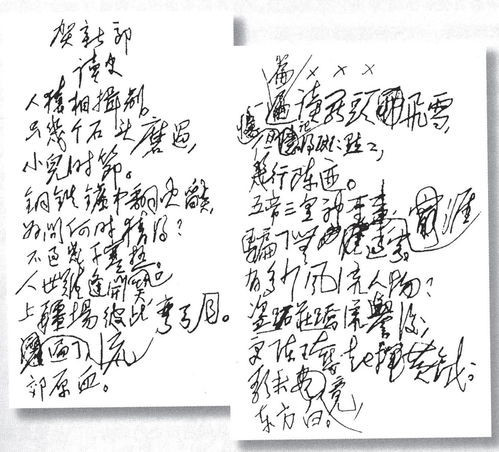 贺新郎
读史
人猿相揖别。
只幾个石头磨过，
小兒时節。
铜铁鑪中翻火焰，
为问何时猜得？
不过几千寒热。
人世难逢開口笑。
上疆場彼此弯弓月。
遍了流
郊原血。
篇 × × ×
一 讀罢頭飛雪，
但记得斑斑点点，
幾行陈迹。
五帝三皇神圣事，
骗了无涯过客。
有多少风流人物？
盗跖莊蹻流誉後，
更陈王奋起挥黄钺。
歌未竟，
东方白。